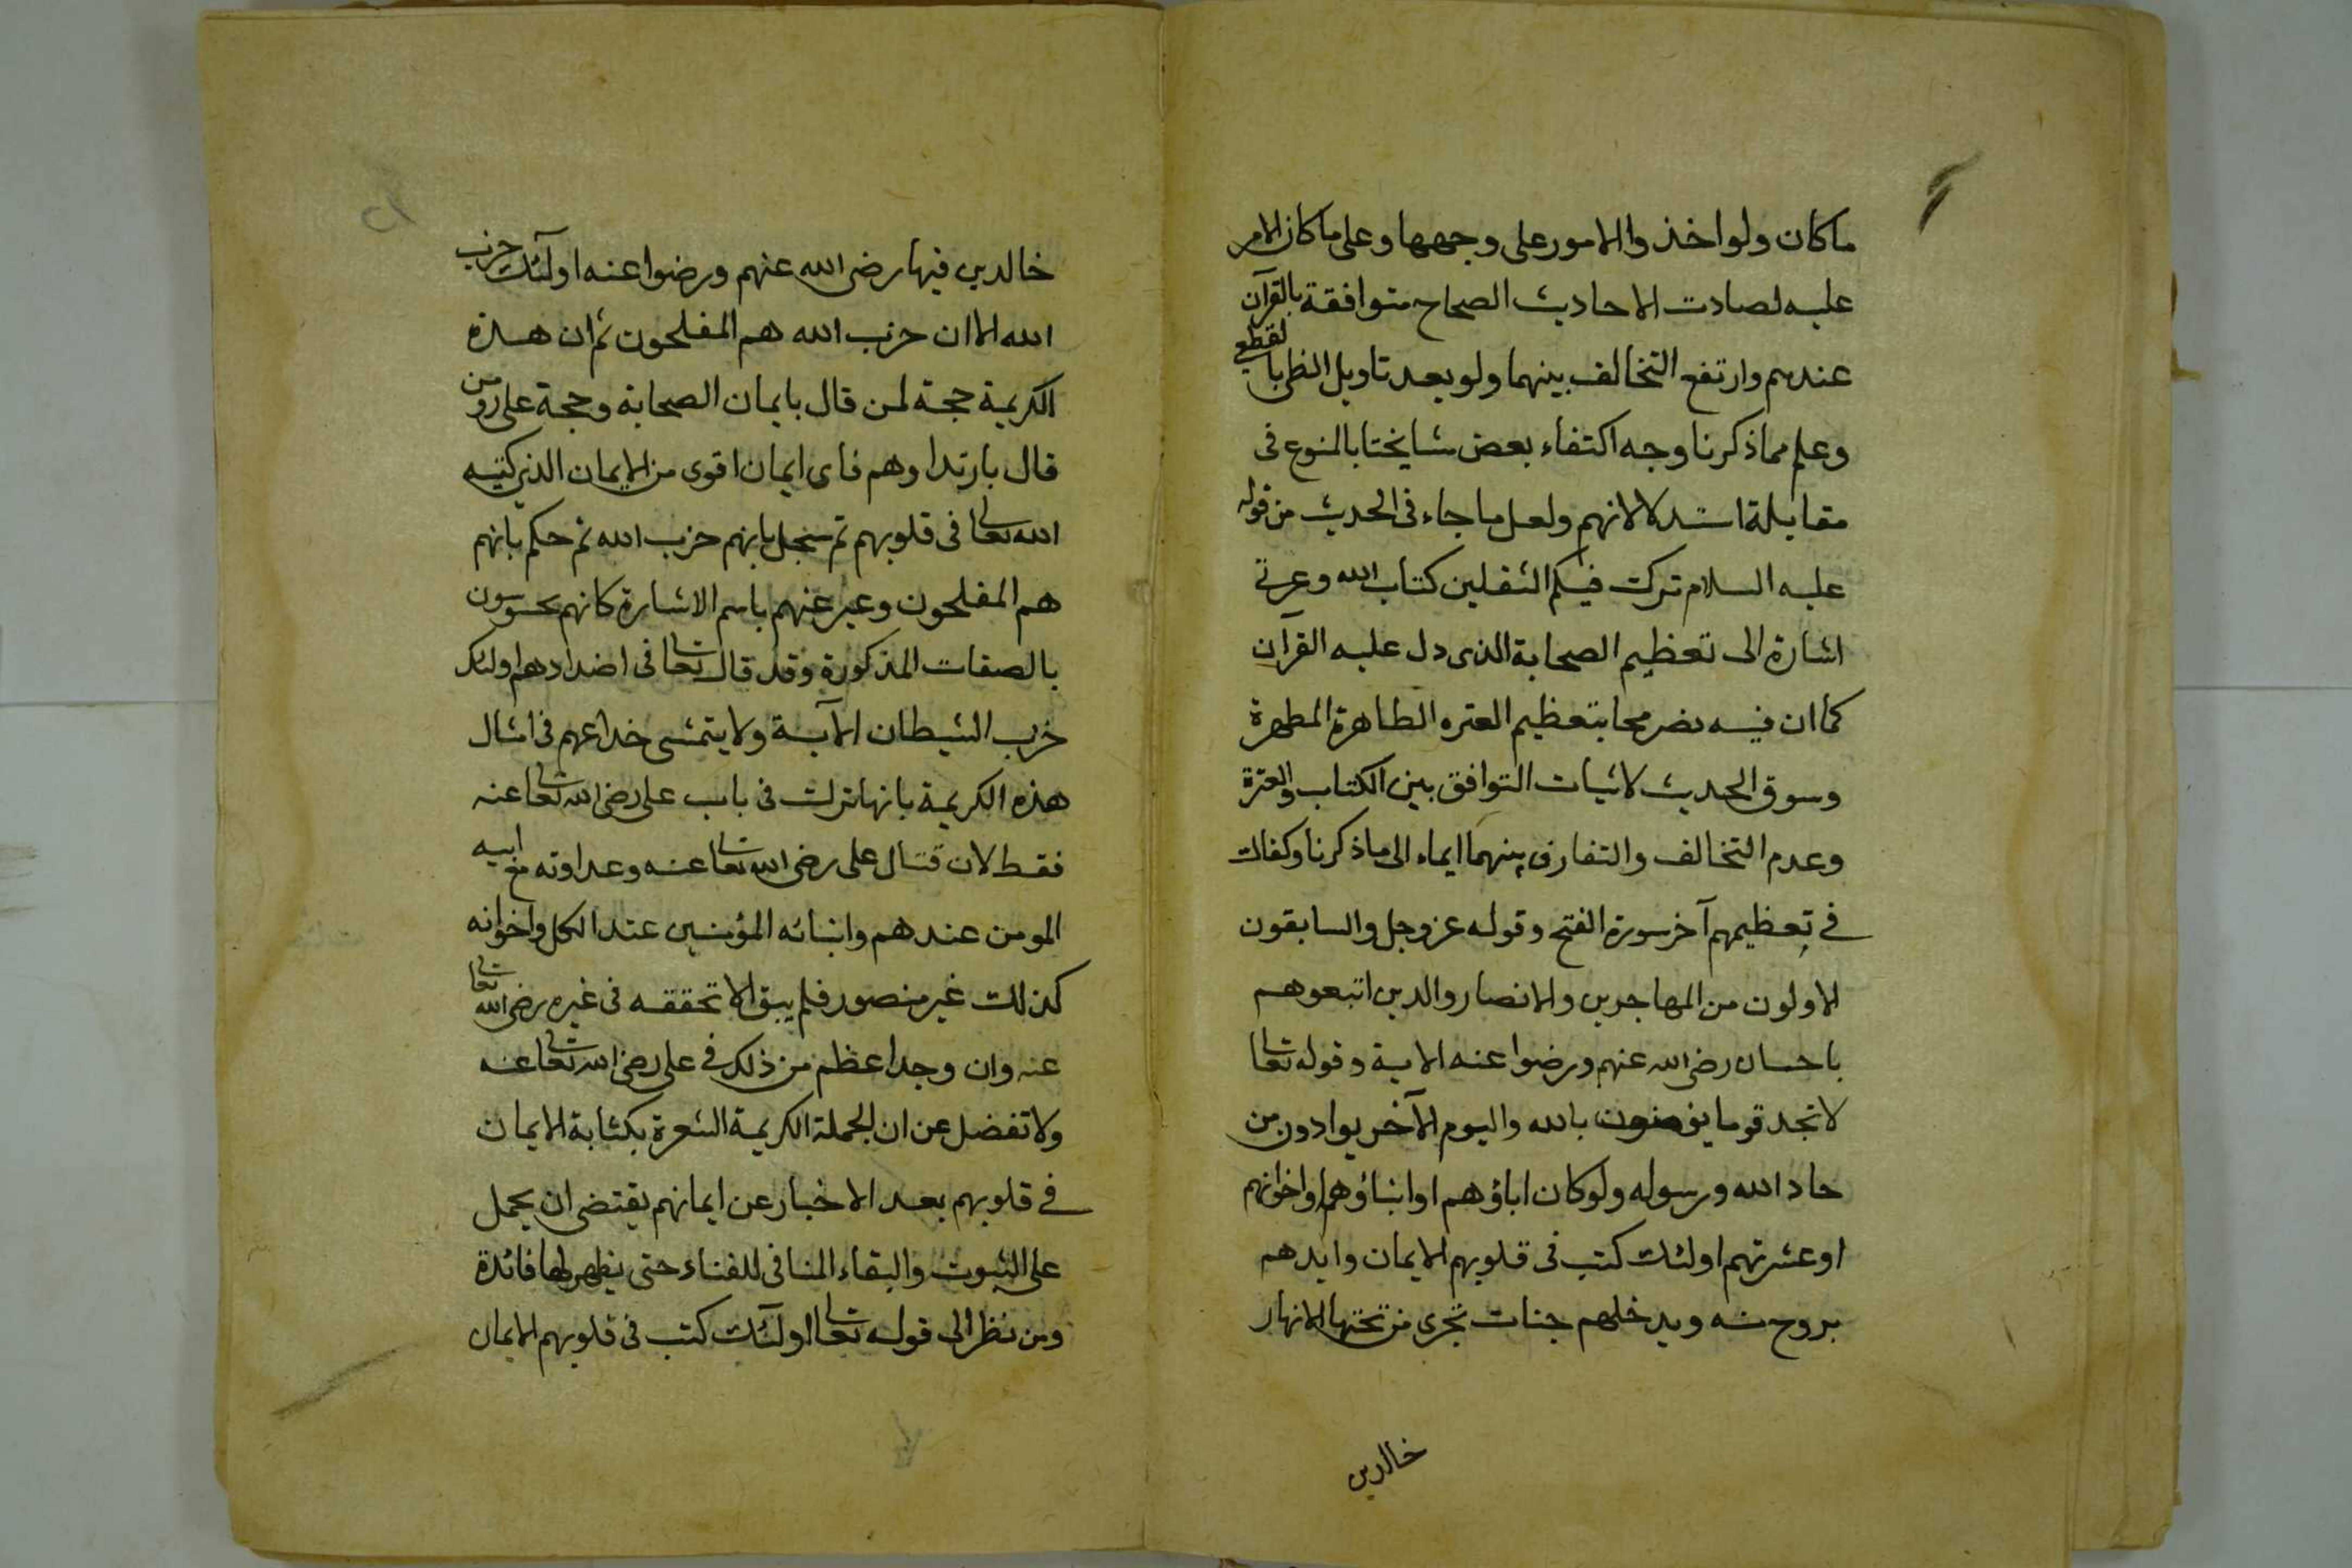 ماكان ولو اخذوا الامور على وجهها وعلى ماكان الامر
عليه لصادت الاحاديث الصحاح متوافقة بالقرآن
عندهم وارتفع التخالف بينهما ولو بعد تاويل الظني بالقطعي
وعلم مماذكرنا وجه اكتفاء بعض مشايختا بالمنوع فى
مقابلة استدلالانهم ولعل ما جاء فى الحديث من قوله
عليه السلام تركت فيكم الثقلين كتاب الله وعرتي
اشارة الى تعظيم الصحابة الذى دل عليه القرآن
كما ان فيه تصريحا بتعظيم العتره الطاهرة المطهرة
وسوق الحديث لاثبات التوافق بين الكتاب والعترة
وعدم التخالف والتفارق بينهما ايماء الى ماذكرنا وكفاك
في تعظيمهم آخر سورة الفتح وقوله عز وجل والسابقون
الاولون من المهاجرين والانصار والذين اتبعوهم
باحسان رضى الله عنهم ورضوا عنه الاية وقوله تعالى
لا تجد قوما يؤمنون بالله واليوم الآخر يوادون من
حاد الله ورسوله ولوكان اباؤهم او ابناؤهم او اخوانهم
او عشرتهم اولئك كتب فى قلوبهم الايمان وايدهم
بروح منه ويدخلهم جنات تجرى من تحتها الانهار
خالدين
خالدين فيها رضى الله عنهم ورضوا عنه اولئك حزب
الله الا ان حزب الله هم المفلحون ثم ان هذه
الكريمة حجة لمن قال بايمان الصحابة وحجة على من
قال بارتدادهم فاى ايمان اقوى من الايمان الذى كتبه
الله تعالى فى قلوبهم ثم سنجل بانهم حزب الله ثم حكم بانهم
هم المفلحون وعبر عنهم باسم الاشارة كانهم محسوسون
بالصفات المذكورة وقد قال تعالى فى اضدادهم اولئك
حزب الشيطان الآية ولا يتمشى خداعهم فى امثال
هذه الكريمة بانها نزلت فى باب على رضى الله تعالى عنه
فقط لان قتال على رضى الله تعالى عنه وعداوته مع ابيه
المومن عندهم وابنائه المؤمنين عند الكل واخوانه
كذلك غير منصور فلم يبق الا تحققه فى غيره رضى الله تعالى
عنه وان وجد اعظم من ذلك في على رضى الله تعالى عنه
ولا تفضل عن ان الجملة الكريمة الشعرة بكتابة الايمان
في قلوبهم بعد الاخبار عن ايمانهم يقتضى ان يحمل
على الثبوت والبقاء المنافى للفناء حتى يظهر لها فائدة
ومن نظر الى قوله تعالى اولئك كتب فى قلوبهم الايمان